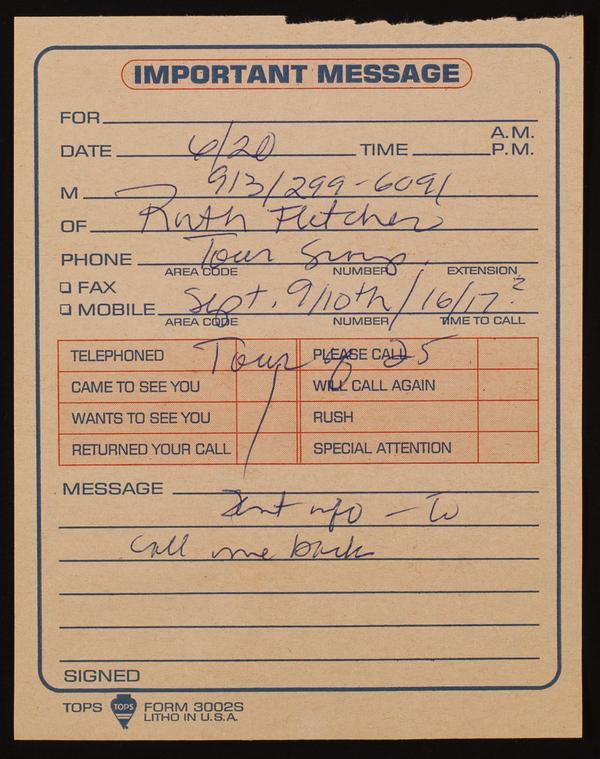 IMPORTANT MESSAGE
FOR
A.M.
DATE 6/20 TIME P.M.
M 913/299-6091
OF Ruth Fletcher
PHONE Tour
AREA CODE NUMBER EXTENSION
☐ FAX
☐ MOBILE Sept. 9/10th/16/17?
AREA CODE NUMBER TIME TO CALL
TELEPHONED PLEASE CALL
Tour of 25
CAME TO SEE YOU WILL CALL AGAIN
WANTS TO SEE YOU RUSH
RETURNED YOUR CALL SPECIAL ATTENTION
MESSAGE
Sent info - To
call me back
SIGNED
TOPS TOPS FORM 3002S
LITHO IN U.S.A.